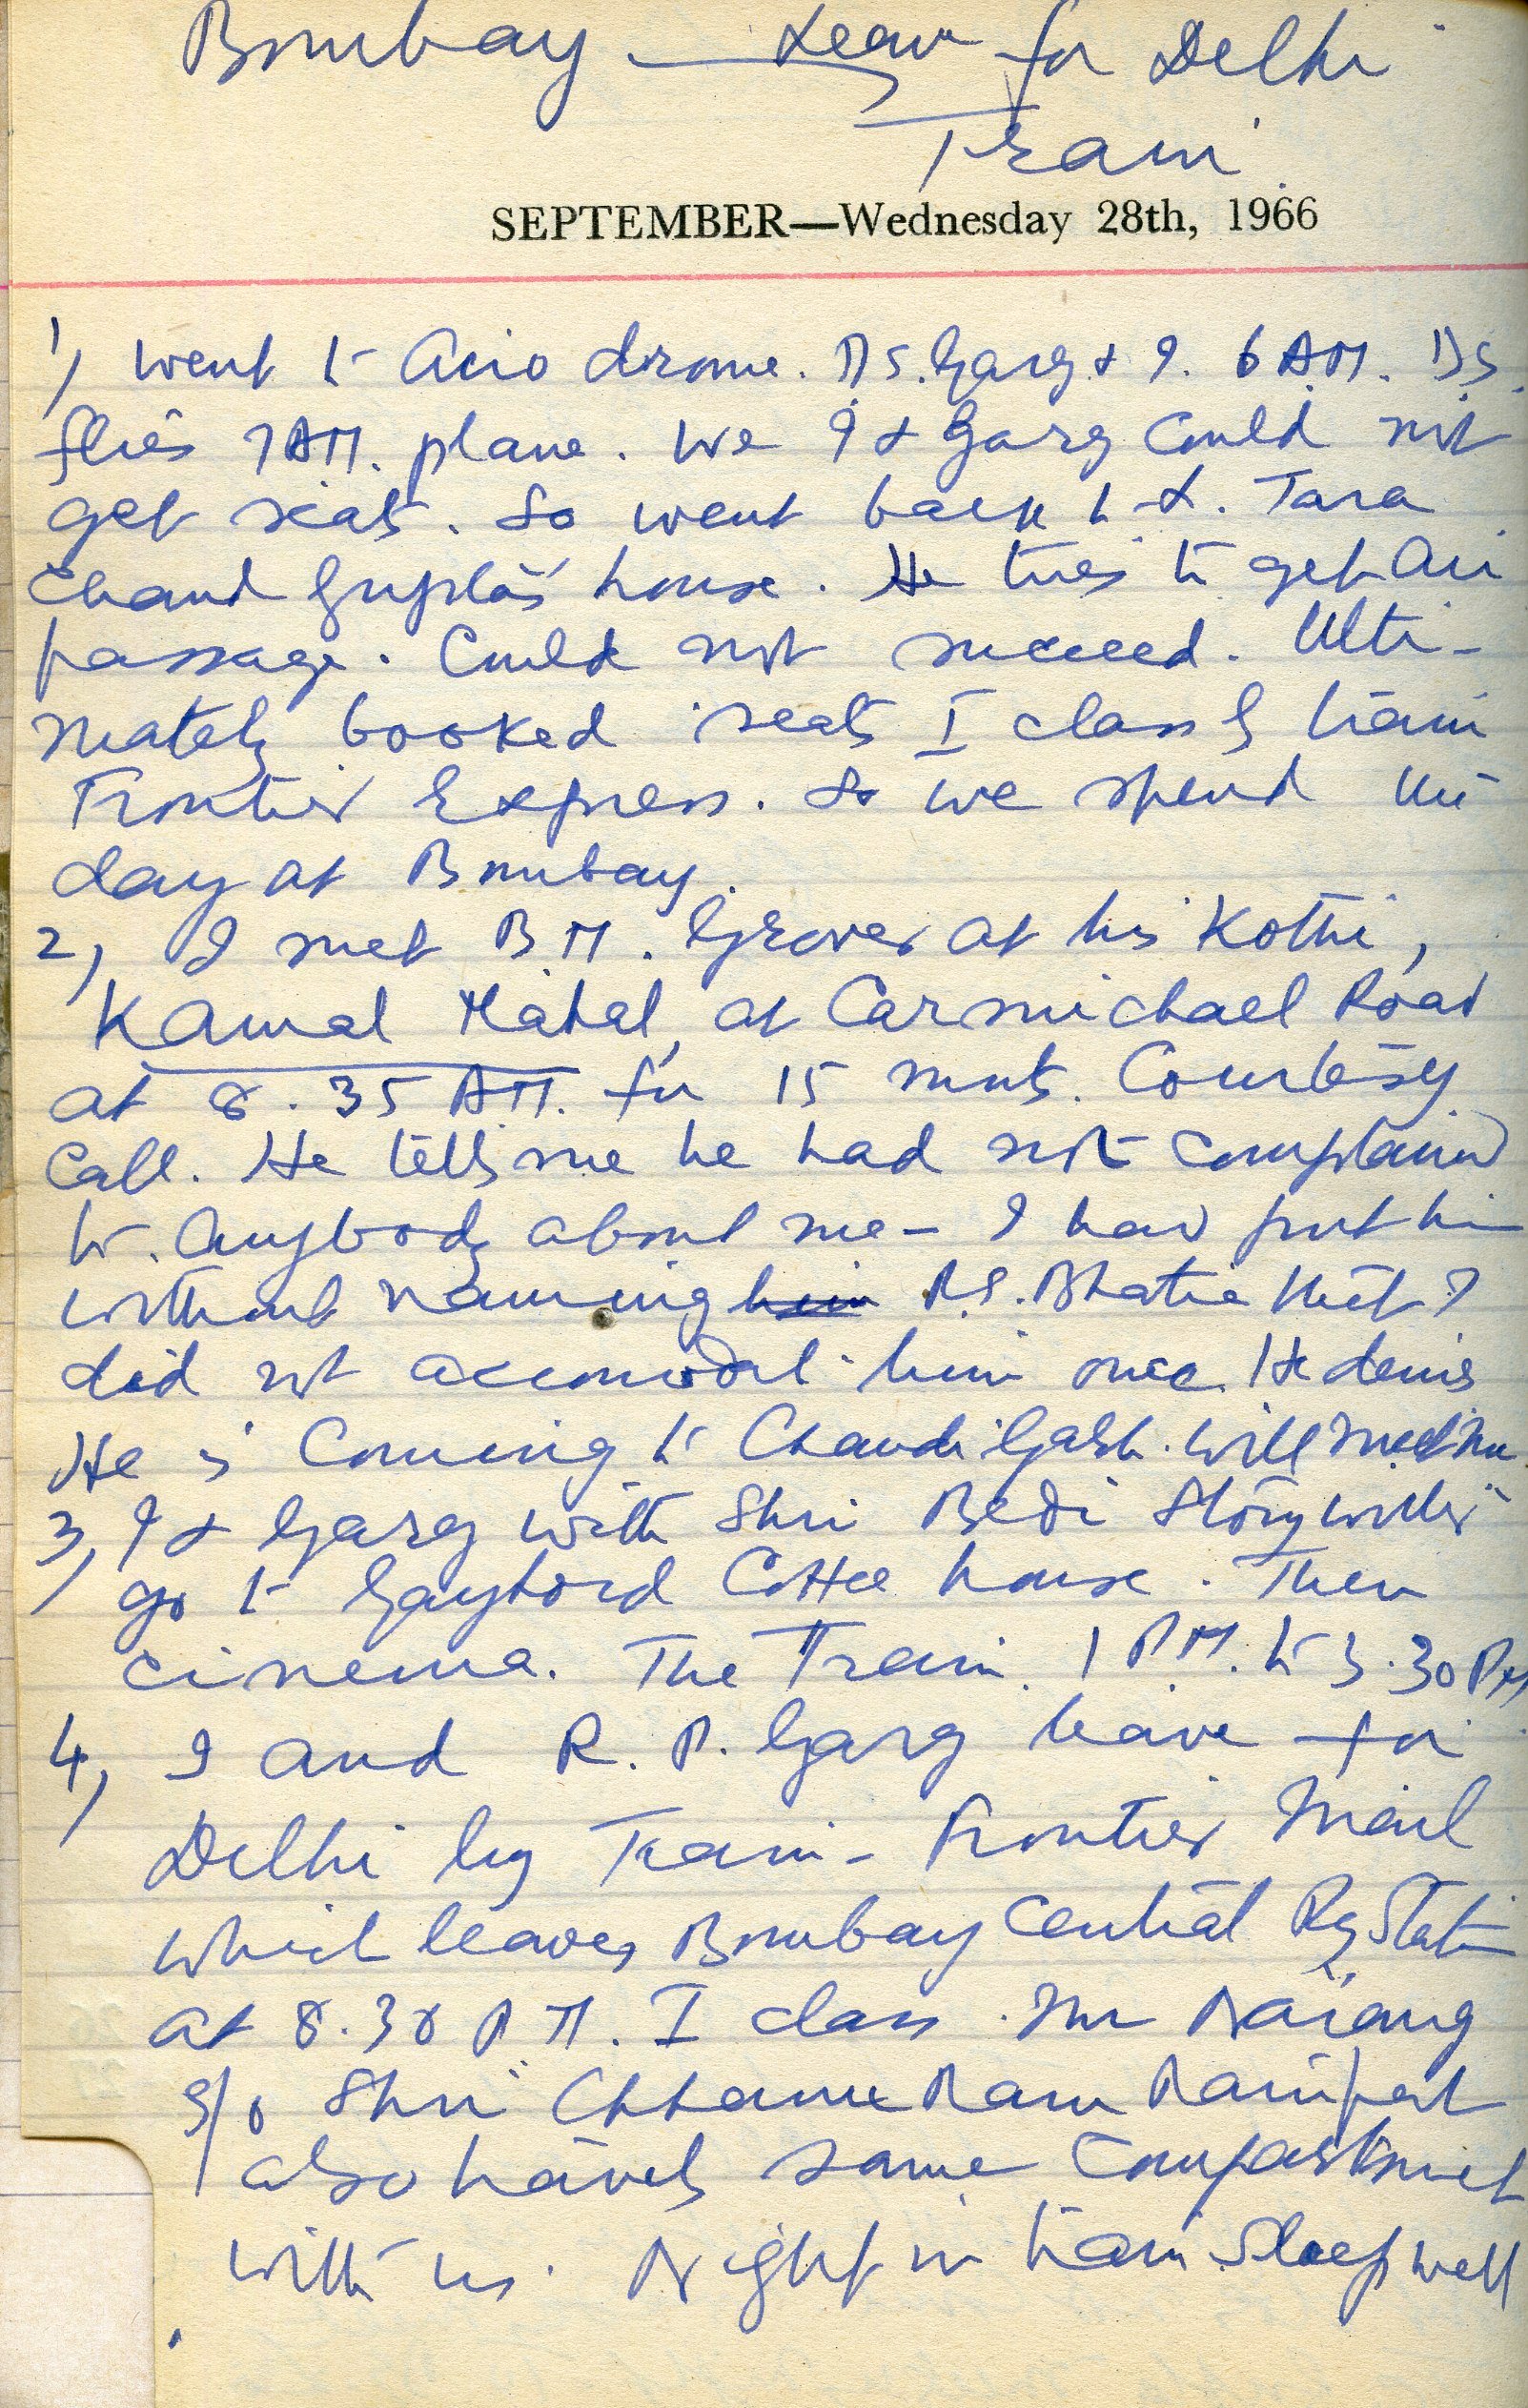 Bombay — Leave for Delhi
Train
SEPTEMBER—Wednesday 28th, 1966
1) Went to Aero drome. D S. Garg & I. 6 AM. DS.
flies 7 AM. plane. We I & Garg Could not
get seats. So went back to L. Tara
Chand Gupta's house. He tries to get Air
passage. Could not succeed. Ulti-
mately booked seats I class by train
Frontier Express. So we spend the
day at Bombay.
2) I met B M. Grover at his Kothi,
Kamal Mahal, at Carmichael Road
at 8.35 AM. for 15 mnts. Courtesy
Call. He tells me he had not complained
to Anybody about me - I had put him
without naming him P.S. Bhatia that I
did not accomodate him once. He denies
He is Coming to Chandi Garh. Will meet me
3) I & Garg with Shri Bedi Story writer
go to Gaylord Coffee house. Then
cinema. The Train. 1 P.M. to 3.30 PM
4) I and R. P. Garg leave for
Delhi by Train - Frontier Mail
which leaves Bombay Central Ry Station
at 8.38 P M. I class. Mr Narang
S/o Shri Ram
also travels same Compartment
with us. Night in train. Sleep well